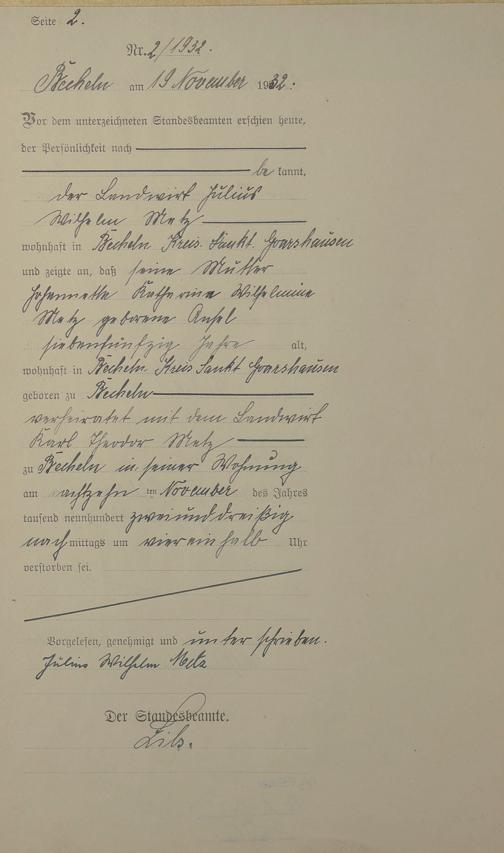 Seite 2.
Nr. 2/1932.
Becheln am 19 November 1932.
Vor dem unterzeichneten Standesbeamten erschien heute,
der Persönlichkeit nach
be kannt,
der Landwirt Julius
Wilhelm Metz
wohnhaft in Becheln Kreis Sankt Goarshausen
und zeigte an, daß seine Mutter
Johannette Katharine Wilhelmine
Metz geborene Ansel
siebenfünfzig Jahre alt,
wohnhaft in Becheln Kreis Sankt Goarshausen
geboren zu Becheln
verheiratet mit dem Landwirt
Karl Theodor Metz
zu Becheln in seiner Wohnung
am achtzehn ten November des Jahres
tausend neunhundert zweiunddreißig
nach mittags um viereinhalb Uhr
verstorben sei.
Vorgelesen, genehmigt und unterschrieben.
Julius Wilhelm Metz
Der Standesbeamte.